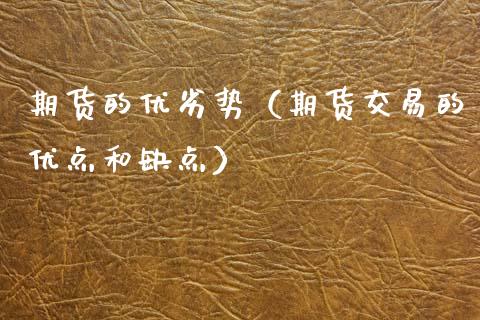 期货的优劣势（期货交易的
优点和缺点）